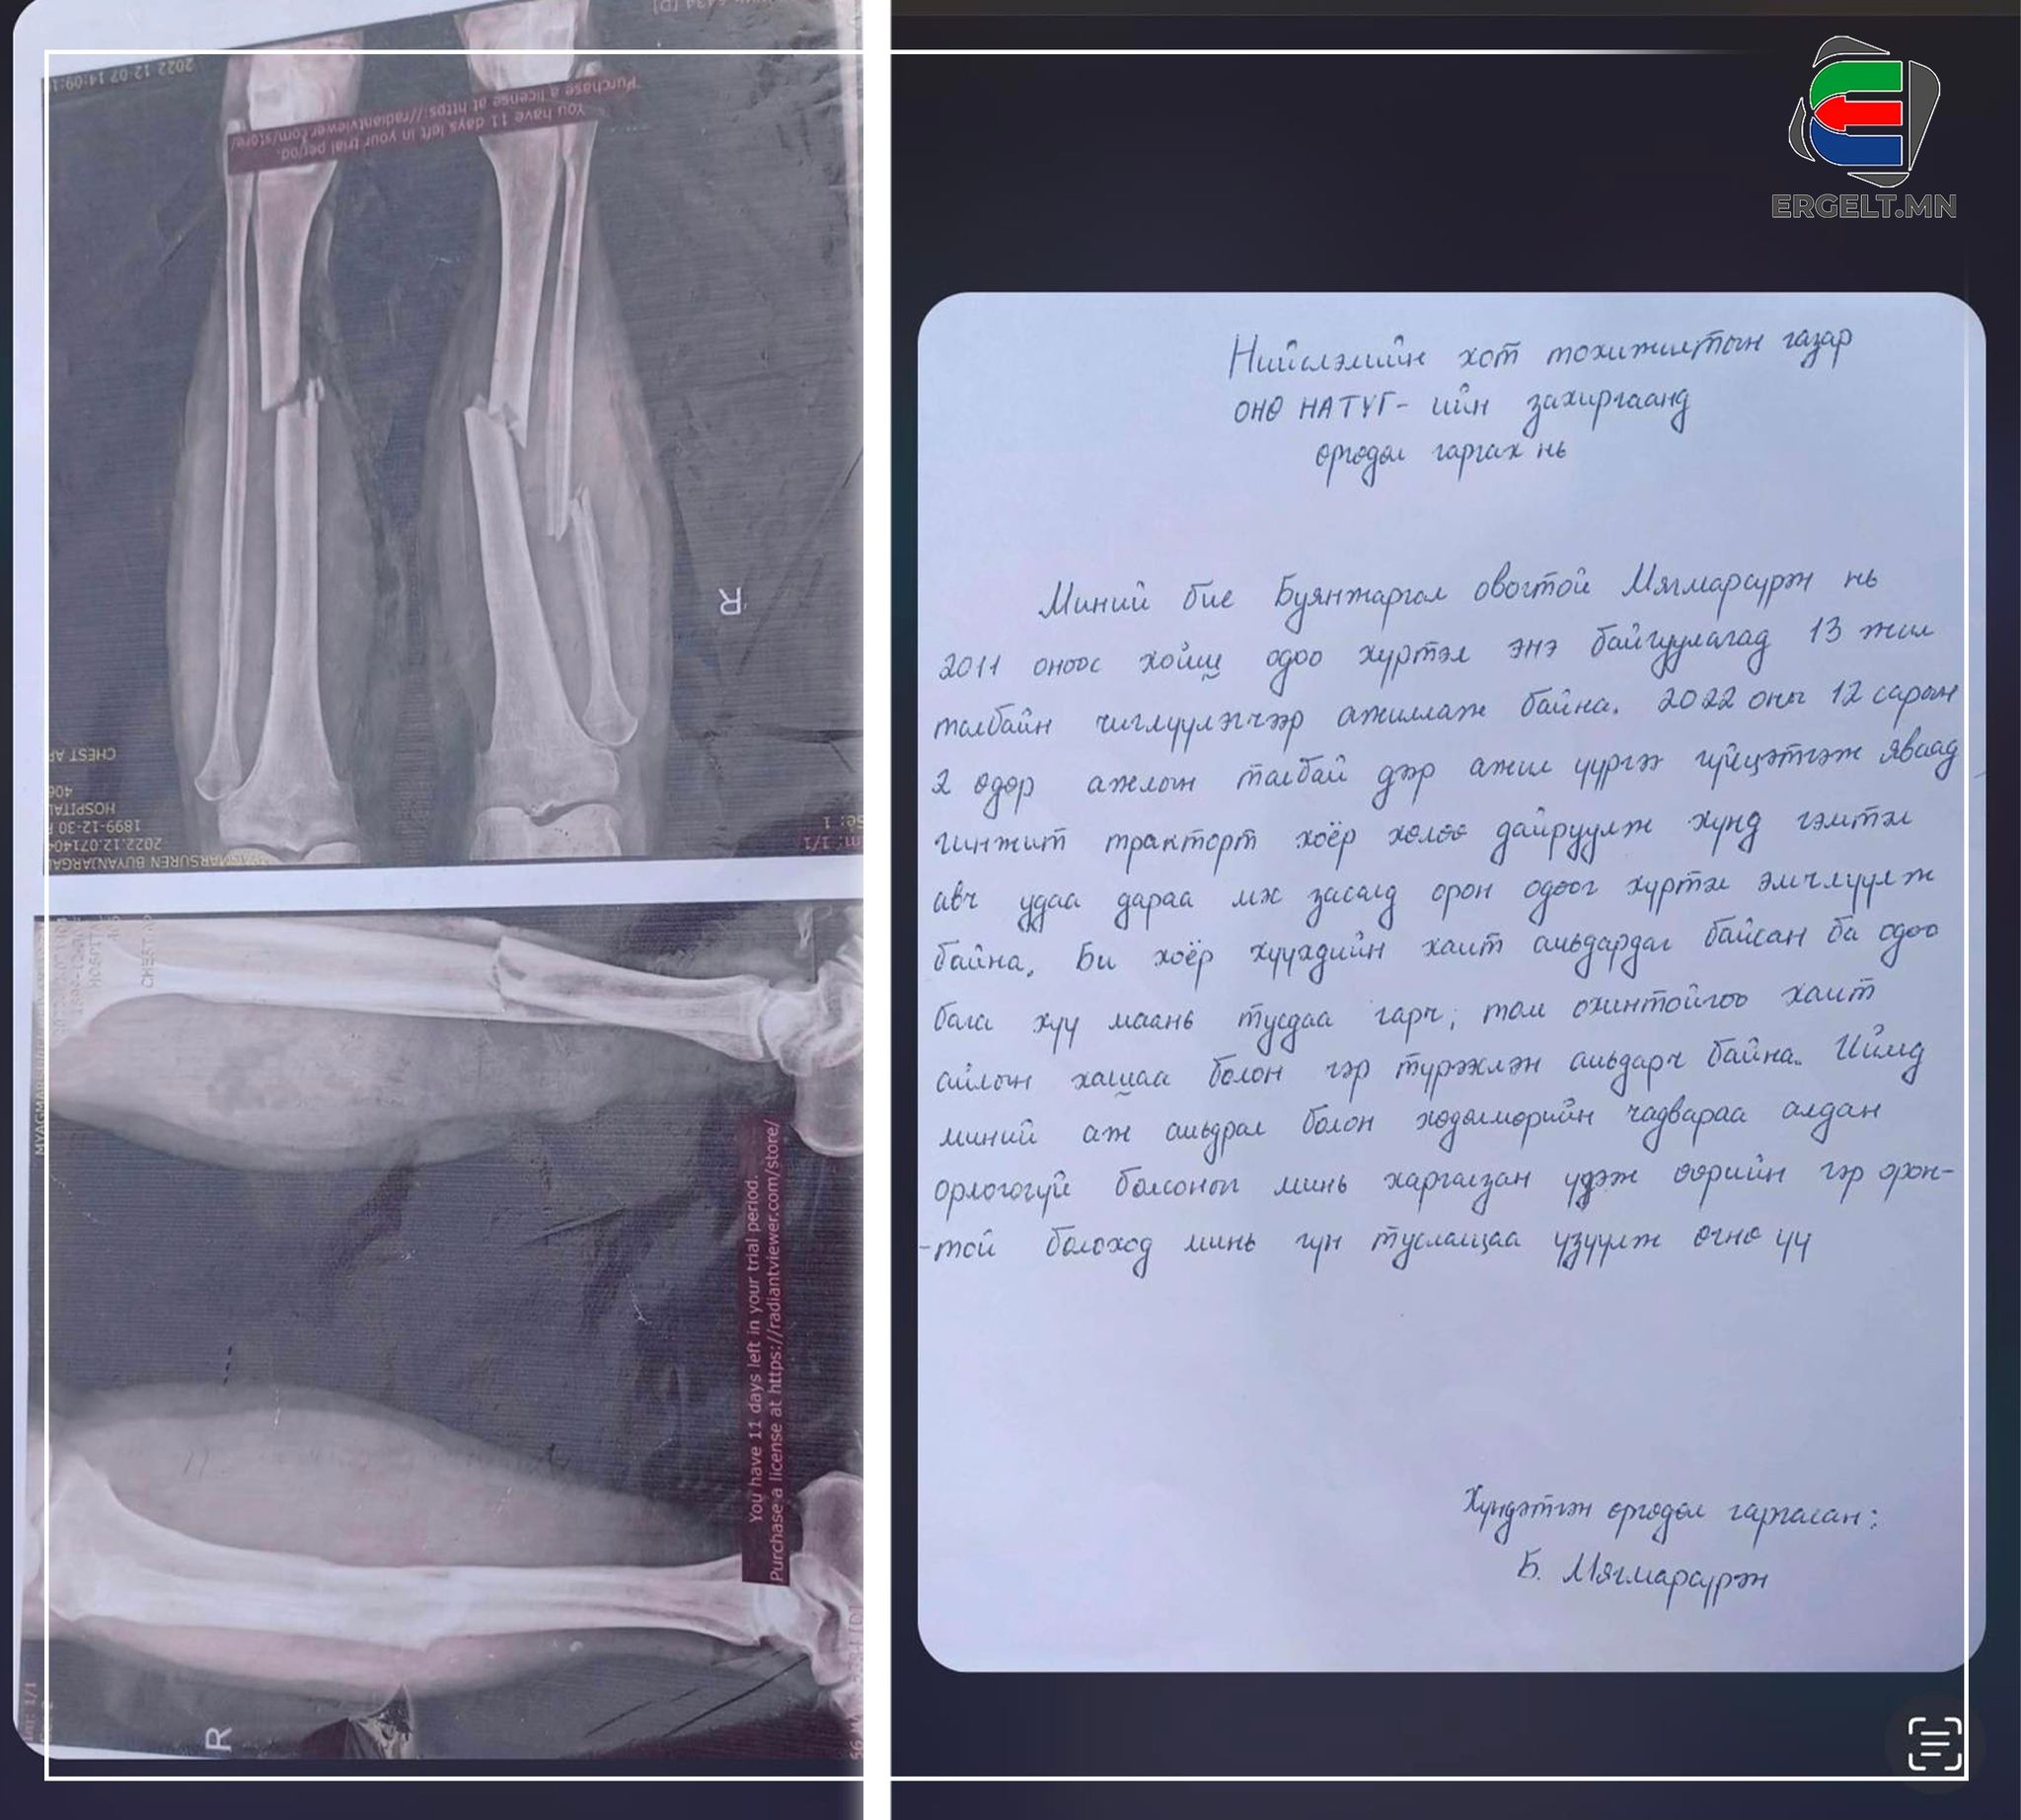 2022 12 07 14:09:1
You have 11 days left in your trial period.
Purchase a license at https://radiantviewer.com/store/
R
CHEST AP
406
HOSPITAL
1899-12-30
2022.12.07140
MYAGMARSUREN BUYANJARGAL
Se: 1
m: 1/1
CHEST AP
You have 11 days left in your trial period.
Purchase a license at https://radiantviewer.com/store/
R
ERGELT.MN
Нийслэлийн хот тохижилтын газар
ОНӨ НАТҮГ- ийн захиргаанд
өргөдөл гаргах нь
Миний бие Буянжаргал овогтой Мягмарсүрэн нь
2011 оноос хойш одоо хүртэл энэ байгууллагад 13 жил
талбайн чиглүүлэгчээр ажиллаж байна. 2022 оны 12 сарын
2 өдөр ажлын талбай дээр ажил үүргээ гүйцэтгэж яваад
гинжит тракторт хоёр хөлөө дайруулж хүнд гэмтэл
авч удаа дараа мэс засалд орон одоог хүртэл эмчлүүлж
байна. Би хоёр хүүхдийн хамт амьдардаг байсан ба одоо
бага хүү маань тусдаа гарч, том охинтойгоо хамт
айлын хашаа болон гэр түрээслэн амьдарч байна. Иймд
миний аж амьдрал болон хөдөлмөрийн чадвараа алдан
орлогогүй болсоныг минь харгалзан үзэж өөрийн гэр орон-
-той болоход минь гүн туслалцаа үзүүлж өгнө үү
Хүндэтгэн өргөдөл гаргасан:
Б. Мягмарсүрэн